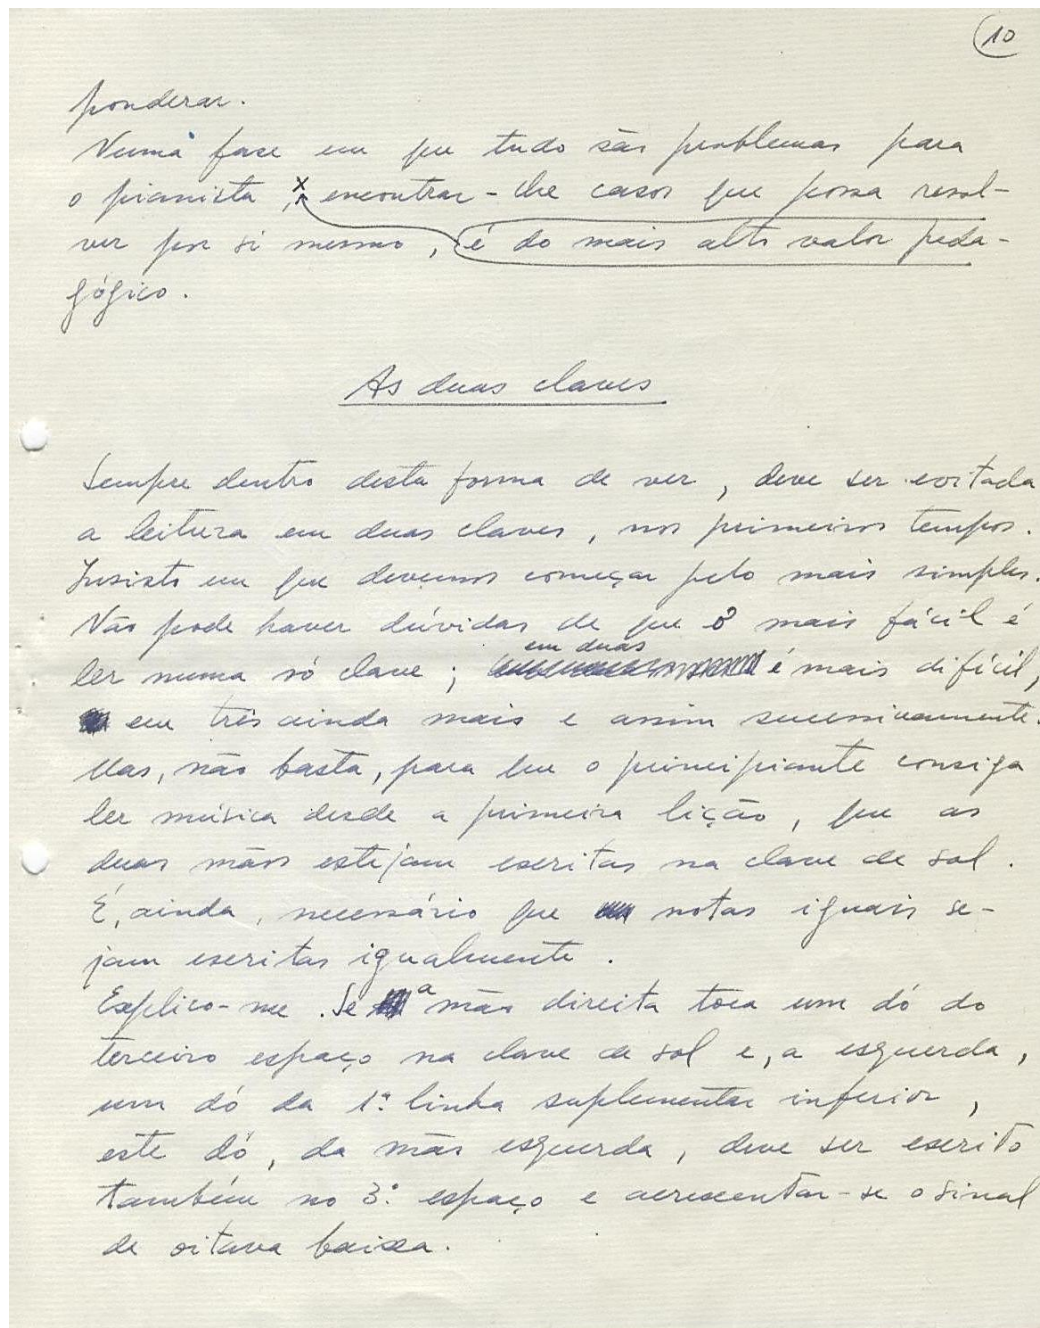 10
ponderar.
Numa fase em que tudo são problemas para
o pianista, x encontrar-lhe casos que possa resol-
ver por si mesmo, é do mais alto valor peda-
gógico.
As duas claves
Sempre dentro desta forma de ver, deve ser evitada
a leitura em duas claves, nos primeiros tempos.
Insisto em que devemos começar pelo mais simples.
Não pode haver dúvidas de que o mais fácil é
em duas
ler numa só clave; é mais difícil,
em três ainda mais e assim sucessivamente.
Mas, não basta, para que o principiante consiga
ler música desde a primeira lição, que as
duas mãos estejam escritas na clave de sol.
É, ainda, necessário que notas iguais se-
jam escritas igualmente.
Explico-me. Se a mão direita toca um dó do
terceiro espaço na clave de sol e, a esquerda,
um dó da 1ª linha suplementar inferior,
este dó, da mão esquerda, deve ser escrito
também no 3º espaço e acrescentar-se o sinal
de oitava baixa.